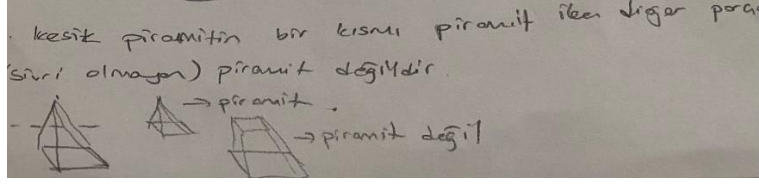 . kesik piramitin bir kısmı piramit iken diğer parça
(sivri olmayan) piramit değildir.
→ piramit.
→ piramit değil